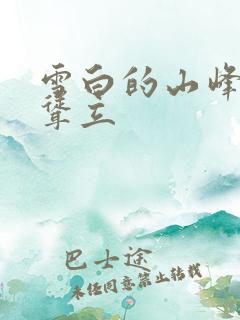 雪白的山峰
耸立
巴士途
未经同意禁止转载